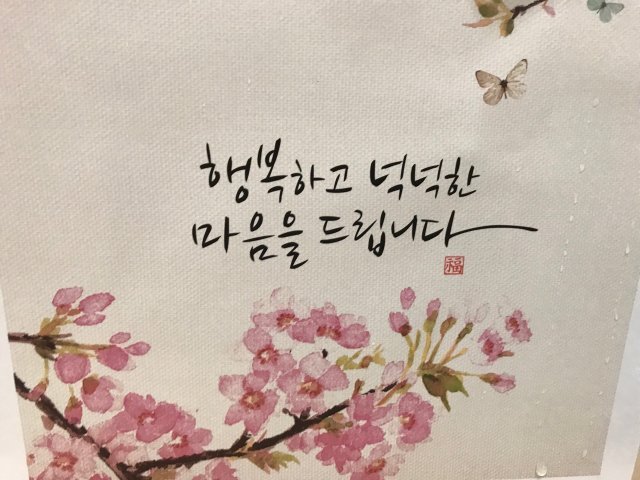 행복하고 넉넉한
마음을 드립니다
福